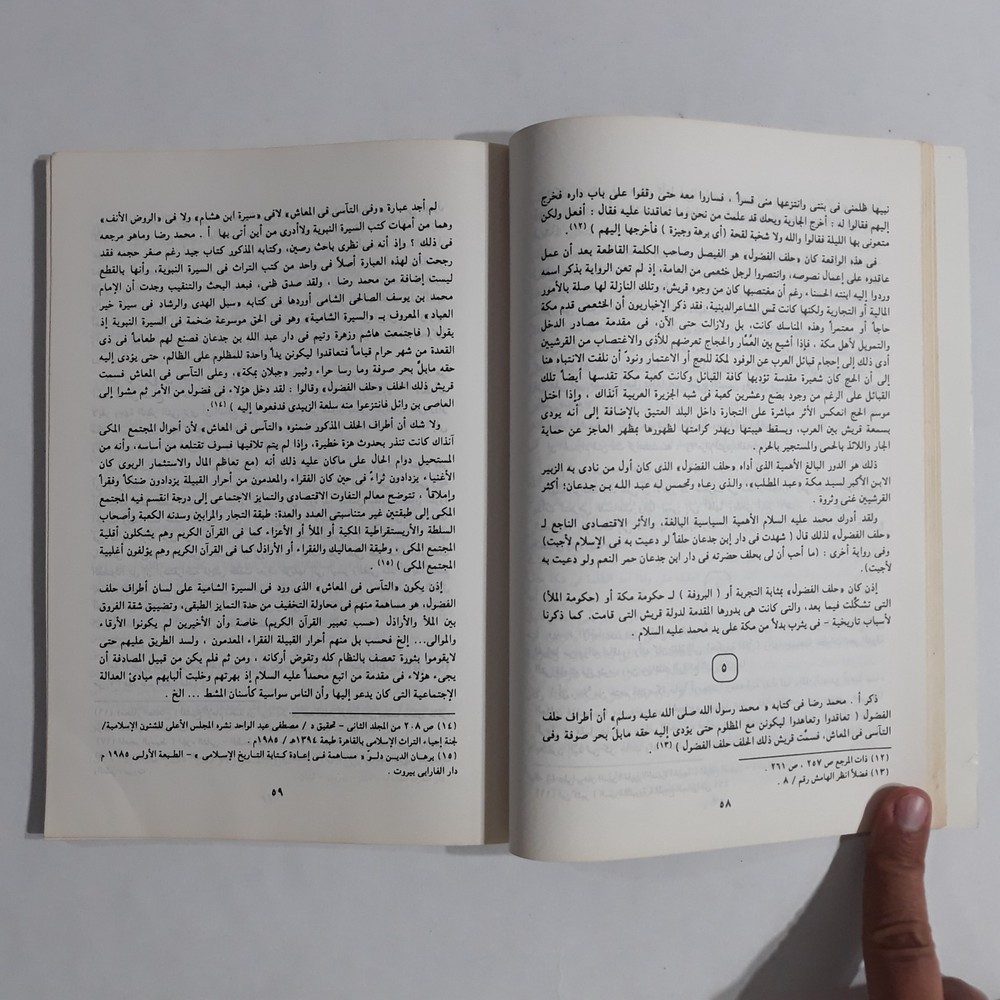 نبيها ظلمنى فى بنتى وانتزعها منى قسراً ، فساروا معه حتى وقفوا على باب داره فخرج
إليهم فقالوا له : أخرج الجارية ويحك قد علمت من نحن وما تعاقدنا عليه فقال : أفعل ولكن
متعونى بها الليلة فقالوا والله ولا شخية لقحة (أى برهة وجيزة ) فأخرجها إليهم ) (١٢).
فى هذه الواقعة كان «حلف الفضول» هو الفيصل وصاحب الكلمة القاطعة بعد أن عمل
عاقدوه على إعمال نصوصه، وانتصروا لرجل خثعمى من العامة، إذ لم تعن الرواية بذكر اسمه
وردوا إليه ابنته الحسناء رغم أن مغتصبها كان من وجوه قريش، وتلك النازلة لها صلة بالأمور
المالية أو التجارية ولكنها كانت تمس المشاعرالدينية، فقد ذكر الإخباريون أن الخثعمى قدم مكة
حاجاً أو معتمراً وهذه المناسك كانت، بل ولازالت حتى الآن، فى مقدمة مصادر الدخل
والتمويل لأهل مكة ، فإذا أشيع بين العمّار والحجاج تعرضهم للأذى والاغتصاب من القرشيين
أدى ذلك إلى إحجام قبائل العرب عن الوفود لمكة للحج أو الاعتمار ونودّ أن نلفت الانتباه هنا
إلى أن الحج كان شعيرة مقدسة تؤديها كافة القبائل وكانت كعبة مكة تقدسها أيضاً تلك
القبائل على الرغم من وجود بضع وعشرين كعبة فى شبه الجزيرة العربية آنذاك . وإذا اختل
موسم الحج انعكس الأثر مباشرة على التجارة داخل البلد العتيق بالإضافة إلى أنه يودى
بسمعة قريش بين العرب، ويسقط هيبتها ويهدر كرامتها لظهورها بمظهر العاجز عن حماية
الجار واللائذ بالحمى والمستجير بالحرم .
ذلك هو الدور البالغ الأهمية الذى أداه «حلف الفضول» الذى كان أول من نادى به الزبير
الابن الأكبر لسيد مكة «عبد المطلب»، والذى رعاه وتحمس له عبد الله بن جدعان؛ أكثر
القرشيين غنى وثروة .
ولقد أدرك محمد عليه السلام الأهمية السياسية البالغة، والأثر الاقتصادى الناجع لـ
«حلف الفضول» لذلك قال ( شهدت فى دار ابن جدعان حلفاً لو دعيت به فى الإسلام لأجبت)
وفى رواية أخرى : (ما أحب أن لى بحلف حضرته فى دار ابن جدعان حمر النعم ولو دعيت به
لأجبت).
إذن كان «حلف الفضول» بمثابة التجربة أو ( البروفة ) لـ حكومة مكة أو (حكومة الملأ)
التى تشكلّت فيما بعد، والتى كانت هى بدورها المقدمة لدولة قريش التى قامت. كما ذكرنا
لأسباب تاريخية - فى يثرب بدلاً من مكة على يد محمد عليه السلام .
٥
ذكر أ . محمد رضا فى كتابه « محمد رسول الله صلى الله عليه وسلم» أن أطراف حلف
الفضول ( تعاقدوا وتعاهدوا ليكونن مع المظلوم حتى يؤدى إليه حقه مابلّ بحر صوفة وفى
التآسى فى المعاش، فسمّت قريش ذلك الحلف حلف الفضول ) (١٣) .
(١٢) ذات المرجع ص ٢٥٧ ، ص ٢٦١ .
(١٣) فضلاً انظر الهامش رقم / ٨ .
٥٨
لم أجد عبارة «وفى التآسى فى المعاش» لافى «سيرة ابن هشام» ولا فى «الروض الأنف»
وهما من أمهات كتب السيرة النبوية ولاأدرى من أين أتى بها أ . محمد رضا وماهو مرجعه
فى ذلك ؟ وإذ أنه فى نظرى باحث رصين، وكتابه المذكور كتاب جيد رغم صغر حجمه فقد
رجحت أن لهذه العبارة أصلاً فى واحد من كتب التراث فى السيرة النبوية، وأنها بالقطع
ليست إضافة من محمد رضا ، ولقد صدق ظنى، فبعد البحث والتنقيب وجدت أن الإمام
محمد بن يوسف الصالحى الشامى أوردها فى كتابه «سبل الهدى والرشاد فى سيرة خير
العباد» المعروف بـ «السيرة الشامية» وهو فى الحق موسوعة ضخمة فى السيرة النبوية إذ
يقول ( فاجتمعت هاشم وزهرة وتيم فى دار عبد الله بن جدعان فصنع لهم طعاماً فى ذى
القعدة من شهر حرام قياماً فتعاقدوا ليكونن يداً واحدة للمظلوم على الظالم، حتى يؤدى إليه
حقه مابل بحر صوفة وما رسا حراء وثبير «جبلان بمكة»، وعلى التآسى فى المعاش فسمت
قريش ذلك الحلف «حلف الفضول» وقالوا : لقد دخل هؤلاء فى فضول من الأمر ثم مشوا إلى
العاصى بن وائل فانتزعوا منه سلعة الزبيدى فدفعوها إليه ) (١٤).
ولا شك أن أطراف الحلف المذكور ضمنوه «التآسى فى المعاش» لأن أحوال المجتمع المكى
آنذاك كانت تنذر بحدوث هزة خطيرة، وإذا لم يتم تلافيها فسوف تقتلعه من أساسه، وأنه من
المستحيل دوام الحال على ماكان عليه ذلك أنه (مع تعاظم المال والاستثمار الربوى كان
الأغنياء يزدادون ثراءً فى حين كان الفقراء والمعدمون من أحرار القبيلة يزدادون ضنكاً وفقراً
وإملاقاً ، تتوضح معالم التفاوت الاقتصادى والتمايز الاجتماعى إلى درجة انقسم فيه المجتمع
المكى إلى طبقتين غير متناسبتى العدد والعدة: طبقة التجار والمرابين وسدنه الكعبة وأصحاب
السلطة والأريستقراطية المكية أو الملأ أو الأعزاء كما فى القرآن الكريم وهم يشكلون أقلية
المجتمع المكى ، وطبقة الصعاليك والفقراء أو الأراذل كما فى القرآن الكريم وهم يؤلفون أغلبية
المجتمع المكى ) (١٥) .
إذن يكون «التآسى فى المعاش» الذى ورد فى السيرة الشامية على لسان أطراف حلف
الفضول، هو مساهمة منهم فى محاولة التخفيف من حدة التمايز الطبقى، وتضييق شقة الفروق
بين الملأ والأراذل (حسب تعبير القرآن الكريم) خاصة وأن الأخيرين لم يكونوا الأرقاء
والموالى... إلخ فحسب بل منهم أحرار القبيلة الفقراء المعدمون ، ولسد الطريق عليهم حتى
لايقوموا بثورة تعصف بالنظام كله وتقوض أركانه ، ومن ثم فلم يكن من قبيل المصادفة أن
يجىء هؤلاء فى مقدمة من اتبع محمداً عليه السلام إذ بهرتهم وخلبت ألبابهم مبادئ العدالة
الإجتماعية التى كان يدعو إليها وأن الناس سواسية كأسنان المشط ... الخ .
(١٤) ص ٢٠٨ من المجلد الثانى - تحقيق د / مصطفى عبد الواحد نشره المجلس الأعلى للشئون الإسلامية/
لجنة إحياء التراث الإسلامى بالقاهرة طبعة ١٣٩٤هـ / ١٩٨٥م .
(١٥) برهان الديـن دلـوّ « مساهمة فـى إعادة كتابة التاريخ الإسلامـى » – الطبعة الأولـى ١٩٨٥ م
دار الفارابى بيروت .
٥٩